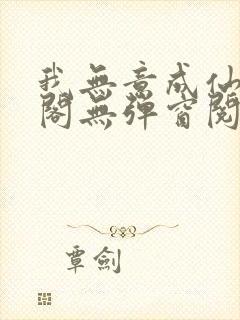 我無意成仙
閣無彈窗閱
覃劍